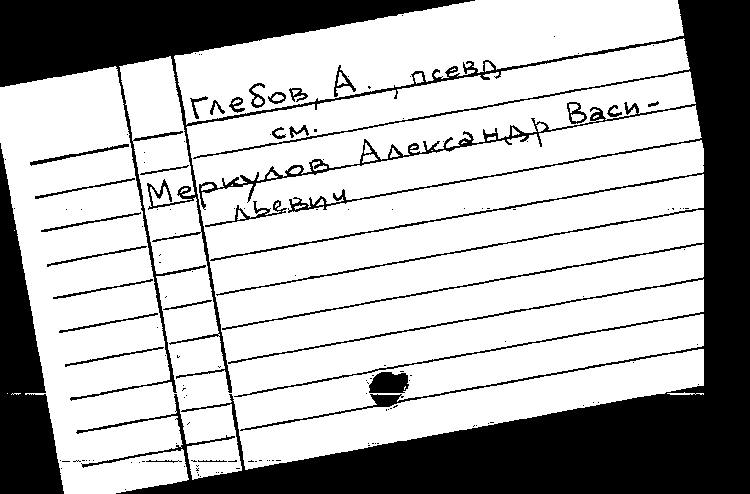 Глебов, А., псевд
см.
Меркулов Александр Васи-
льевич